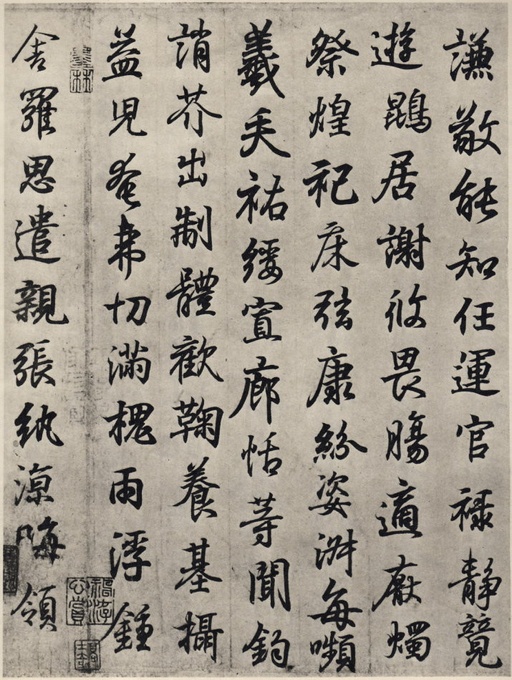 謙敬能知任運官祿靜竟
遊鵾居謝攸畏腸適厭燭
祭煌祀床弦康紛姿淑每嚬
羲矢祐綏宣廊恬等聞鈞
誚芥出制體歡鞠養基攝
益兒奄弗切滿槐雨浮鍾
舍羅思遣親張紈涼晦領